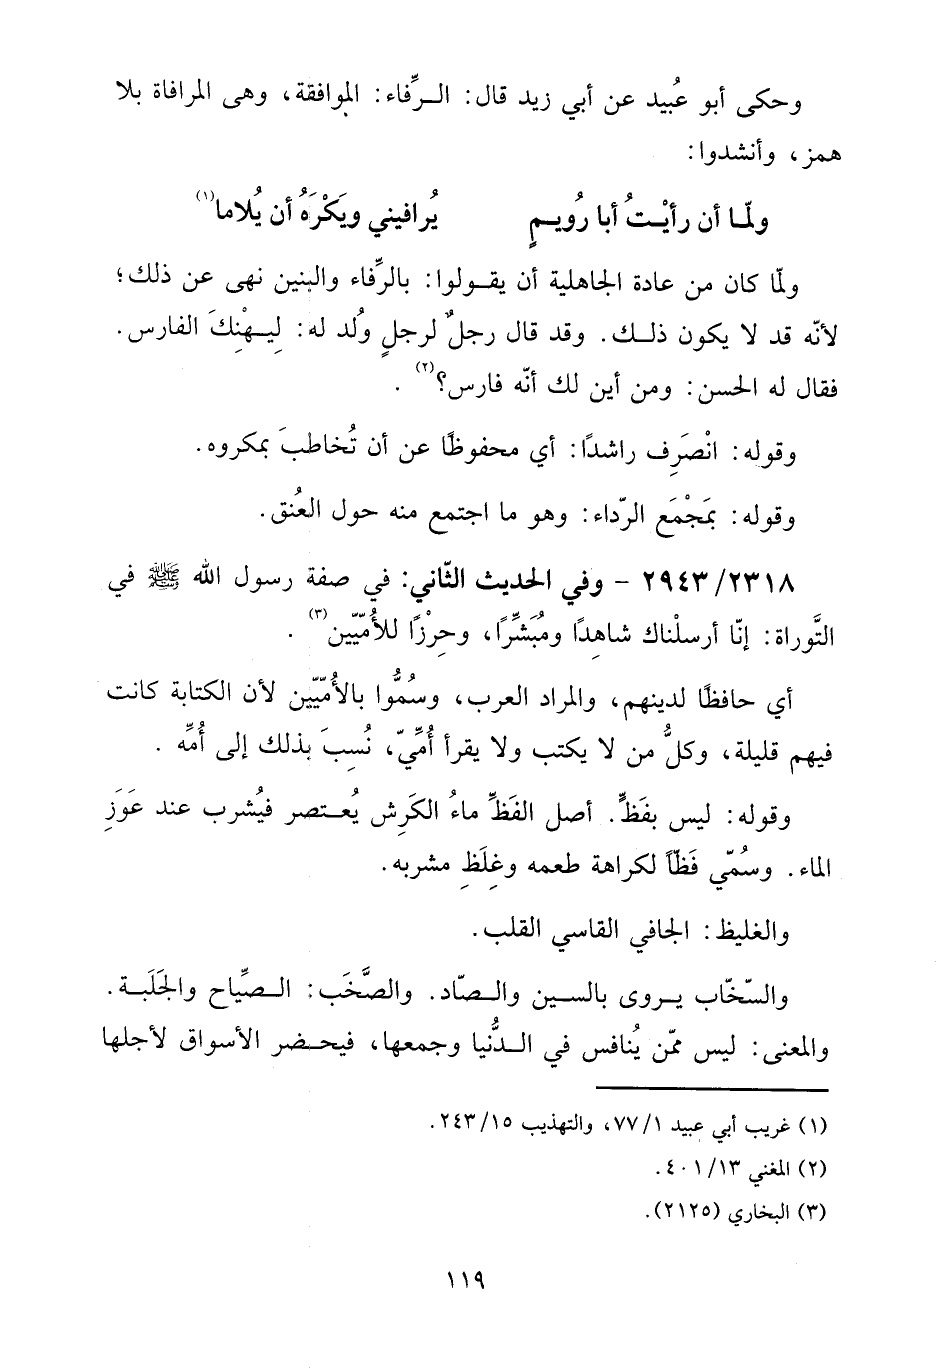 وحكى أبو عُبيد عن أبي زيد قال: الـرِّفاء: الموافقة، وهى المرافاة بلا
همز، وأنشدوا:
ولمّـا أن رأيْـتُ أبا رُويـمٍ يُرافيني ويَكْرَهُ أن يُلاما(١)
ولمّا كان من عادة الجاهلية أن يقـولوا: بالرِّفاء والبنين نهى عن ذلك؛
لأنّه قد لا يكون ذلـك. وقد قال رجلٌ لرجلٍ وُلد له: لِيـهْنِكَ الفارس.
فقال له الحسن: ومن أين لك أنّه فارس؟(٢) .
وقوله: انْصَرِف راشدًا: أي محفوظًا عن أن تُخاطبَ بمكروه.
وقوله: بمَجْمَع الرّداء: وهو ما اجتمع منه حول العُنق.
٢٩٤٣/٢٣١٨ – وفي الحديث الثّاني: في صفة رسول الله ﷺ في
التَّوراة: إنّا أرسلْناك شاهِدًا ومُبَشِّرًا، وحِرْزًا للأُمّيّين(٣) .
أي حافظًا لدينهم، والمراد العرب، وسُمُّوا بالأُمّيّين لأن الكتابة كانت
فيهم قليلة، وكلُّ من لا يكتب ولا يقرأ أُمِّيّ، نُسِبَ بذلك إلى أُمِّه .
وقوله: ليس بفَظٍّ. أصل الفَظِّ ماءُ الكَرِش يُعـتصر فيُشرب عند عَوَزِ
الماء. وسُمّي فَظّاً لكراهة طعمه وغِلَظِ مشربه.
والغليظ: الجافي القاسي القلب.
والسّخّاب يـروى بالسـين والـصّاد. والصَّخَب: الـصِّياح والجَلَبـة.
والمعنى: ليس ممّن يُنافس في الـدُّنيا وجمعها، فيحـضر الأسواق لأجلها
(١) غريب أبي عبيد ٧٧/١، والتهذيب ٢٤٣/١٥.
(٢) المغني ٤٠١/١٣.
(٣) البخاري (٢١٢٥).
١١٩